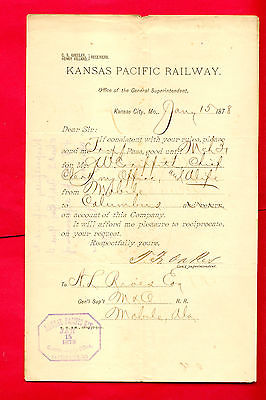 C. S. GREELEY,
HENRY VILLARD, } RECEIVERS.
KANSAS PACIFIC RAILWAY.
Office of the General Superintendent.
Kansas City, Mo., Jany 15 1878
Dear Sir:
If consistent with your rules, please
send me Trip Pass, good until Mch 31,
for Mr. Chief
Clerk my Office, and Wife
from Mobile
to Columbus AND RETURN
on account of this Company.
It will afford me pleasure to reciprocate,
on your request.
Respectfully yours,
T F Oakes
Gen'l Superintendent.
To A L Rives Esq
Gen'l Sup't M & O R. R.
Mobile, Ala.
KANSAS PACIFIC RY.
JAN
15
1878